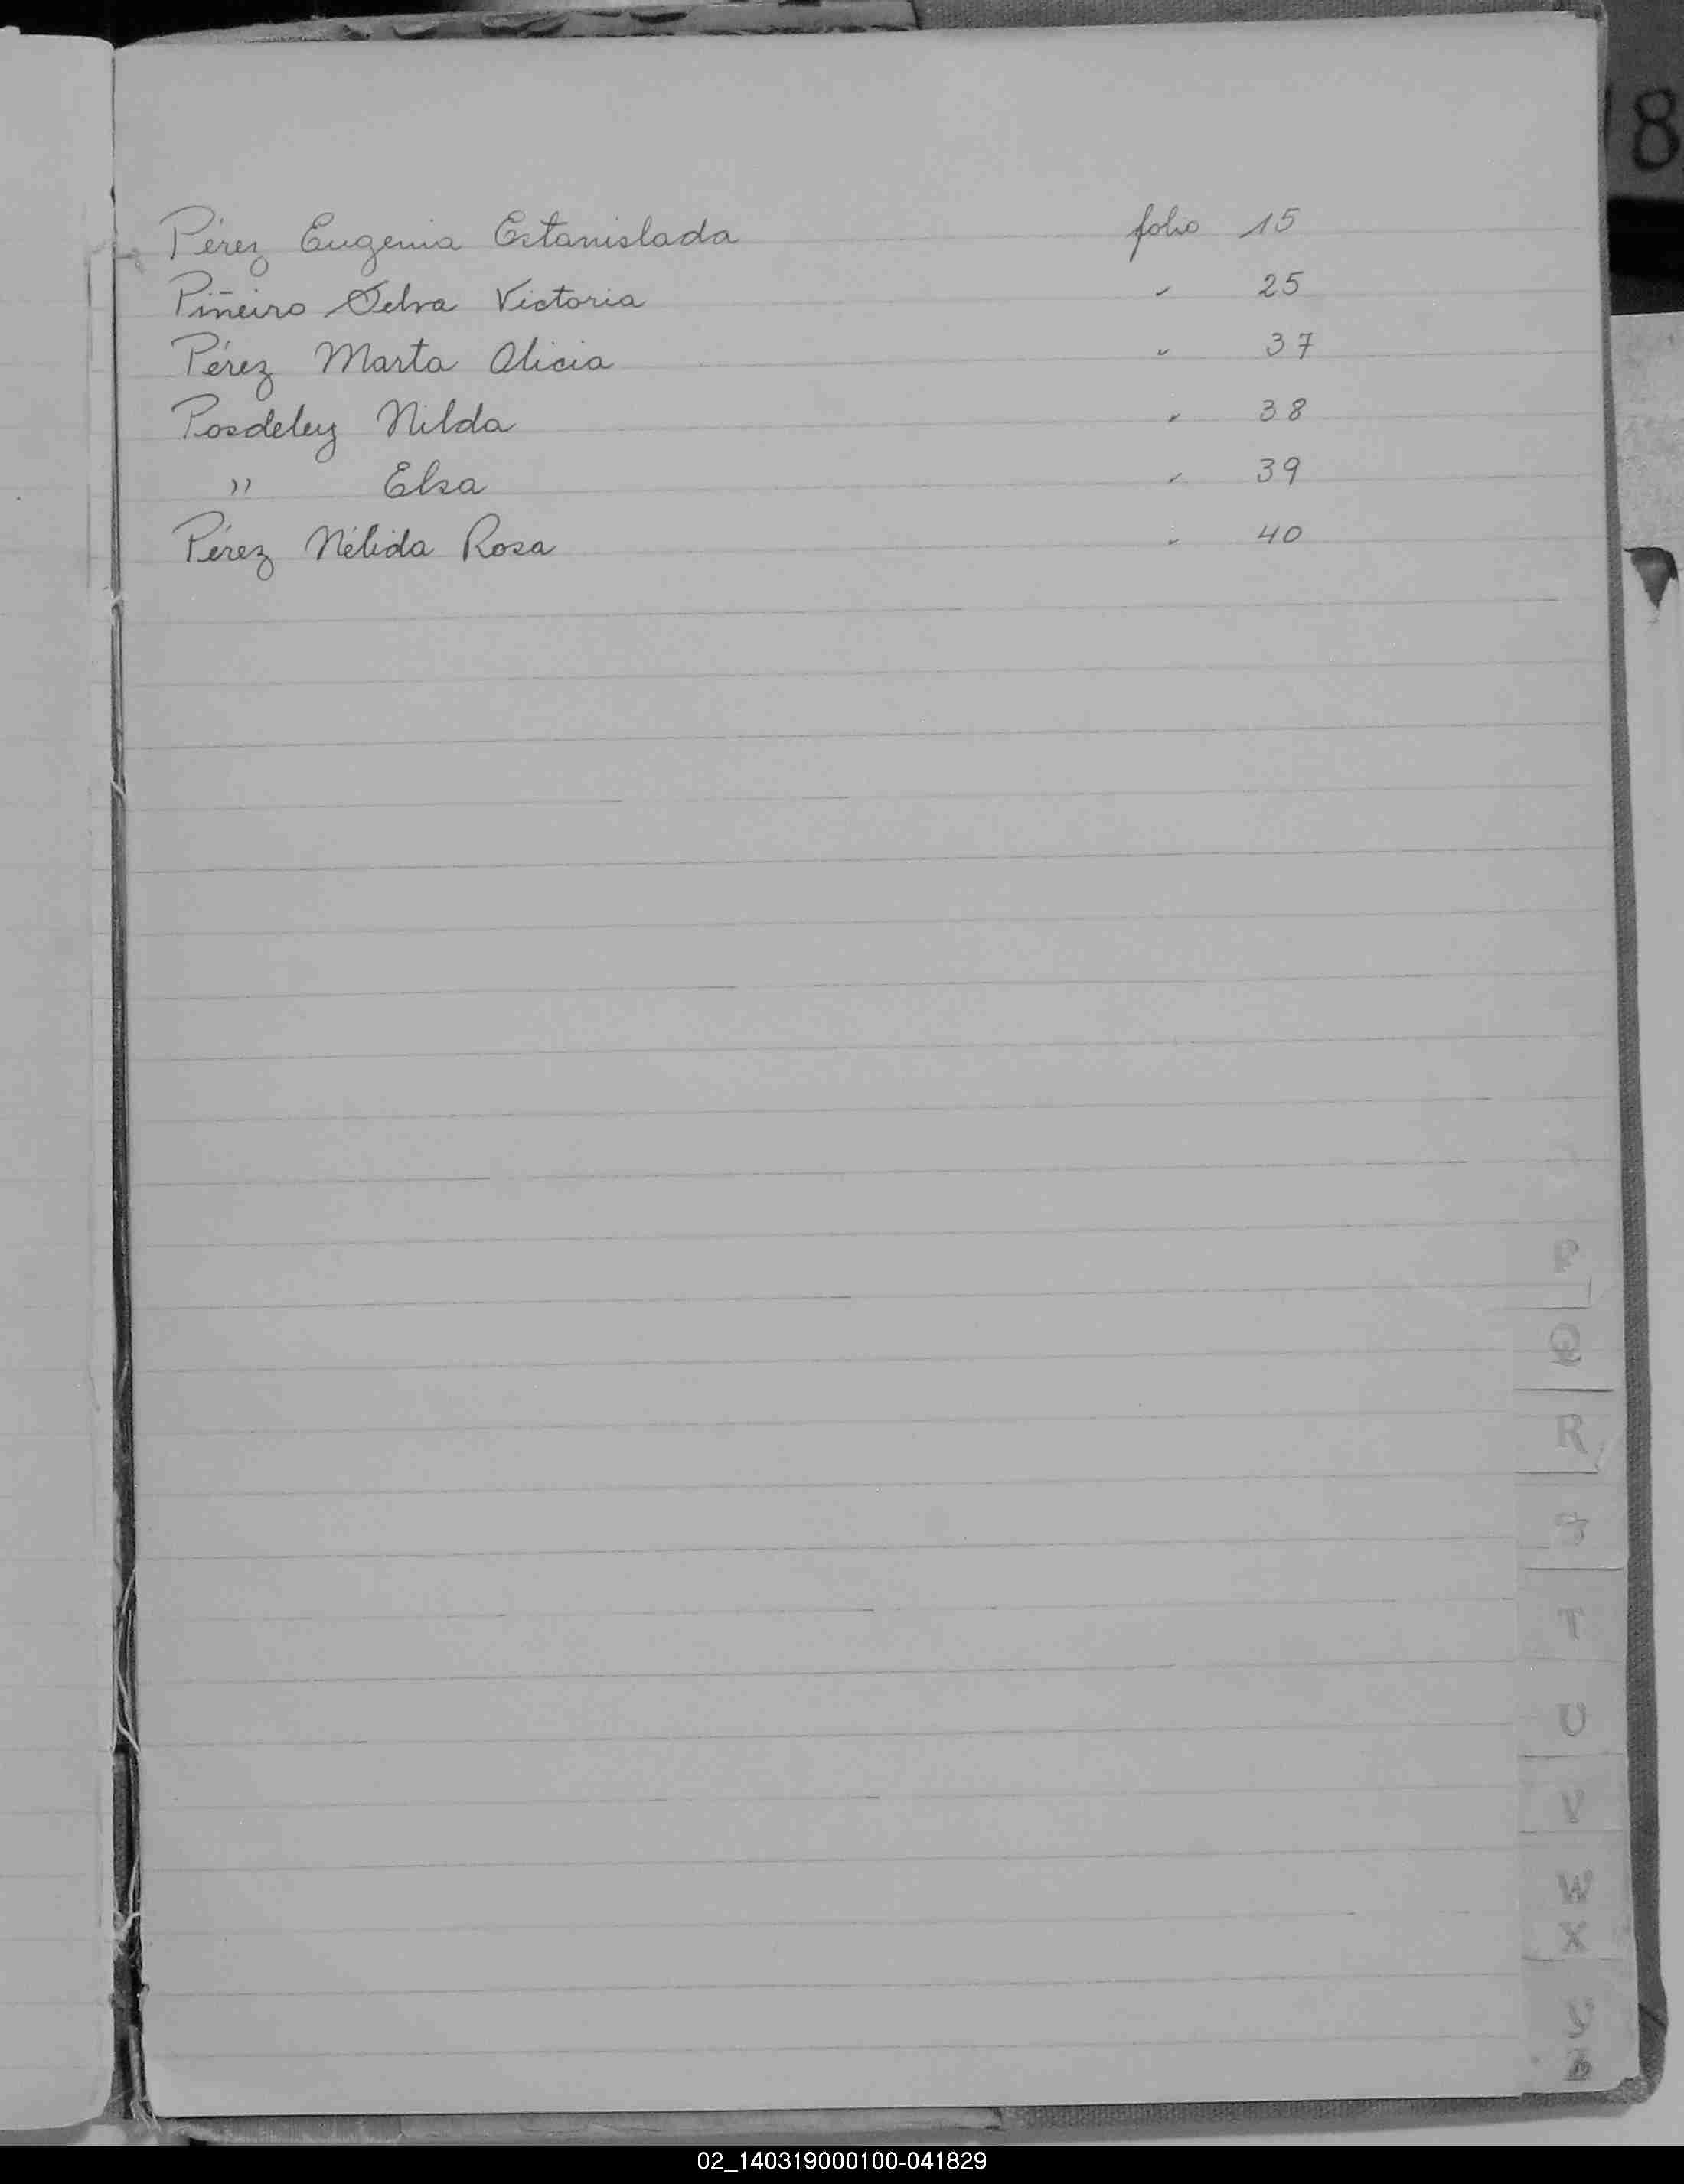 8
Pérez Eugenia Estanislada folio 15
Piñeiro Selva Victoria " 25
Pérez Marta Alicia " 37
Posdeley Nilda " 38
" Elsa " 39
Pérez Nélida Rosa " 40
P
Q
R
S
T
U
V
W
X
Y
Z
02_140319000100-041829